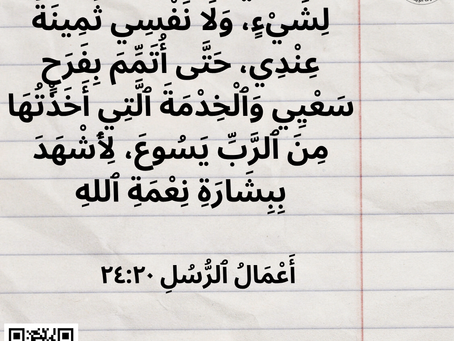 لِشَيْءٍ، وَلَا نَفْسِي ثَمِينَةٌ
عِنْدِي، حَتَّى أُتَمِّمَ بِفَرَحٍ
سَعْيِي وَٱلْخِدْمَةَ ٱلَّتِي أَخَذْتُهَا
مِنَ ٱلرَّبِّ يَسُوعَ، لِأَشْهَدَ
بِبِشَارَةِ نِعْمَةِ ٱللهِ
أَعْمَالُ ٱلرُّسُلِ ٢٤:٢٠